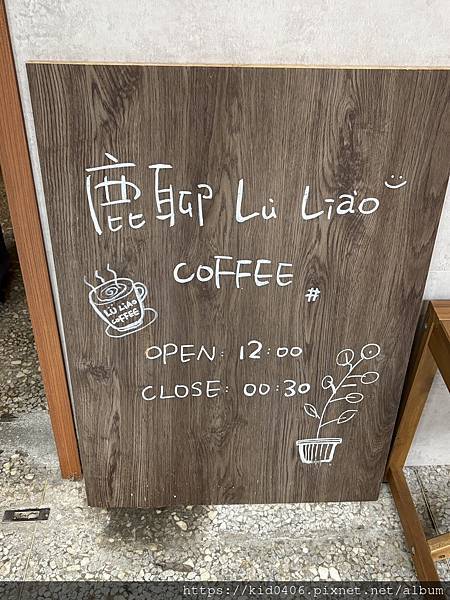 鹿聊 Lù Liáo
COFFEE
#
LÙ LIÁO
COFFEE
OPEN: 12:00
CLOSE: 00:30
https://kid0406.pixnet.net/album